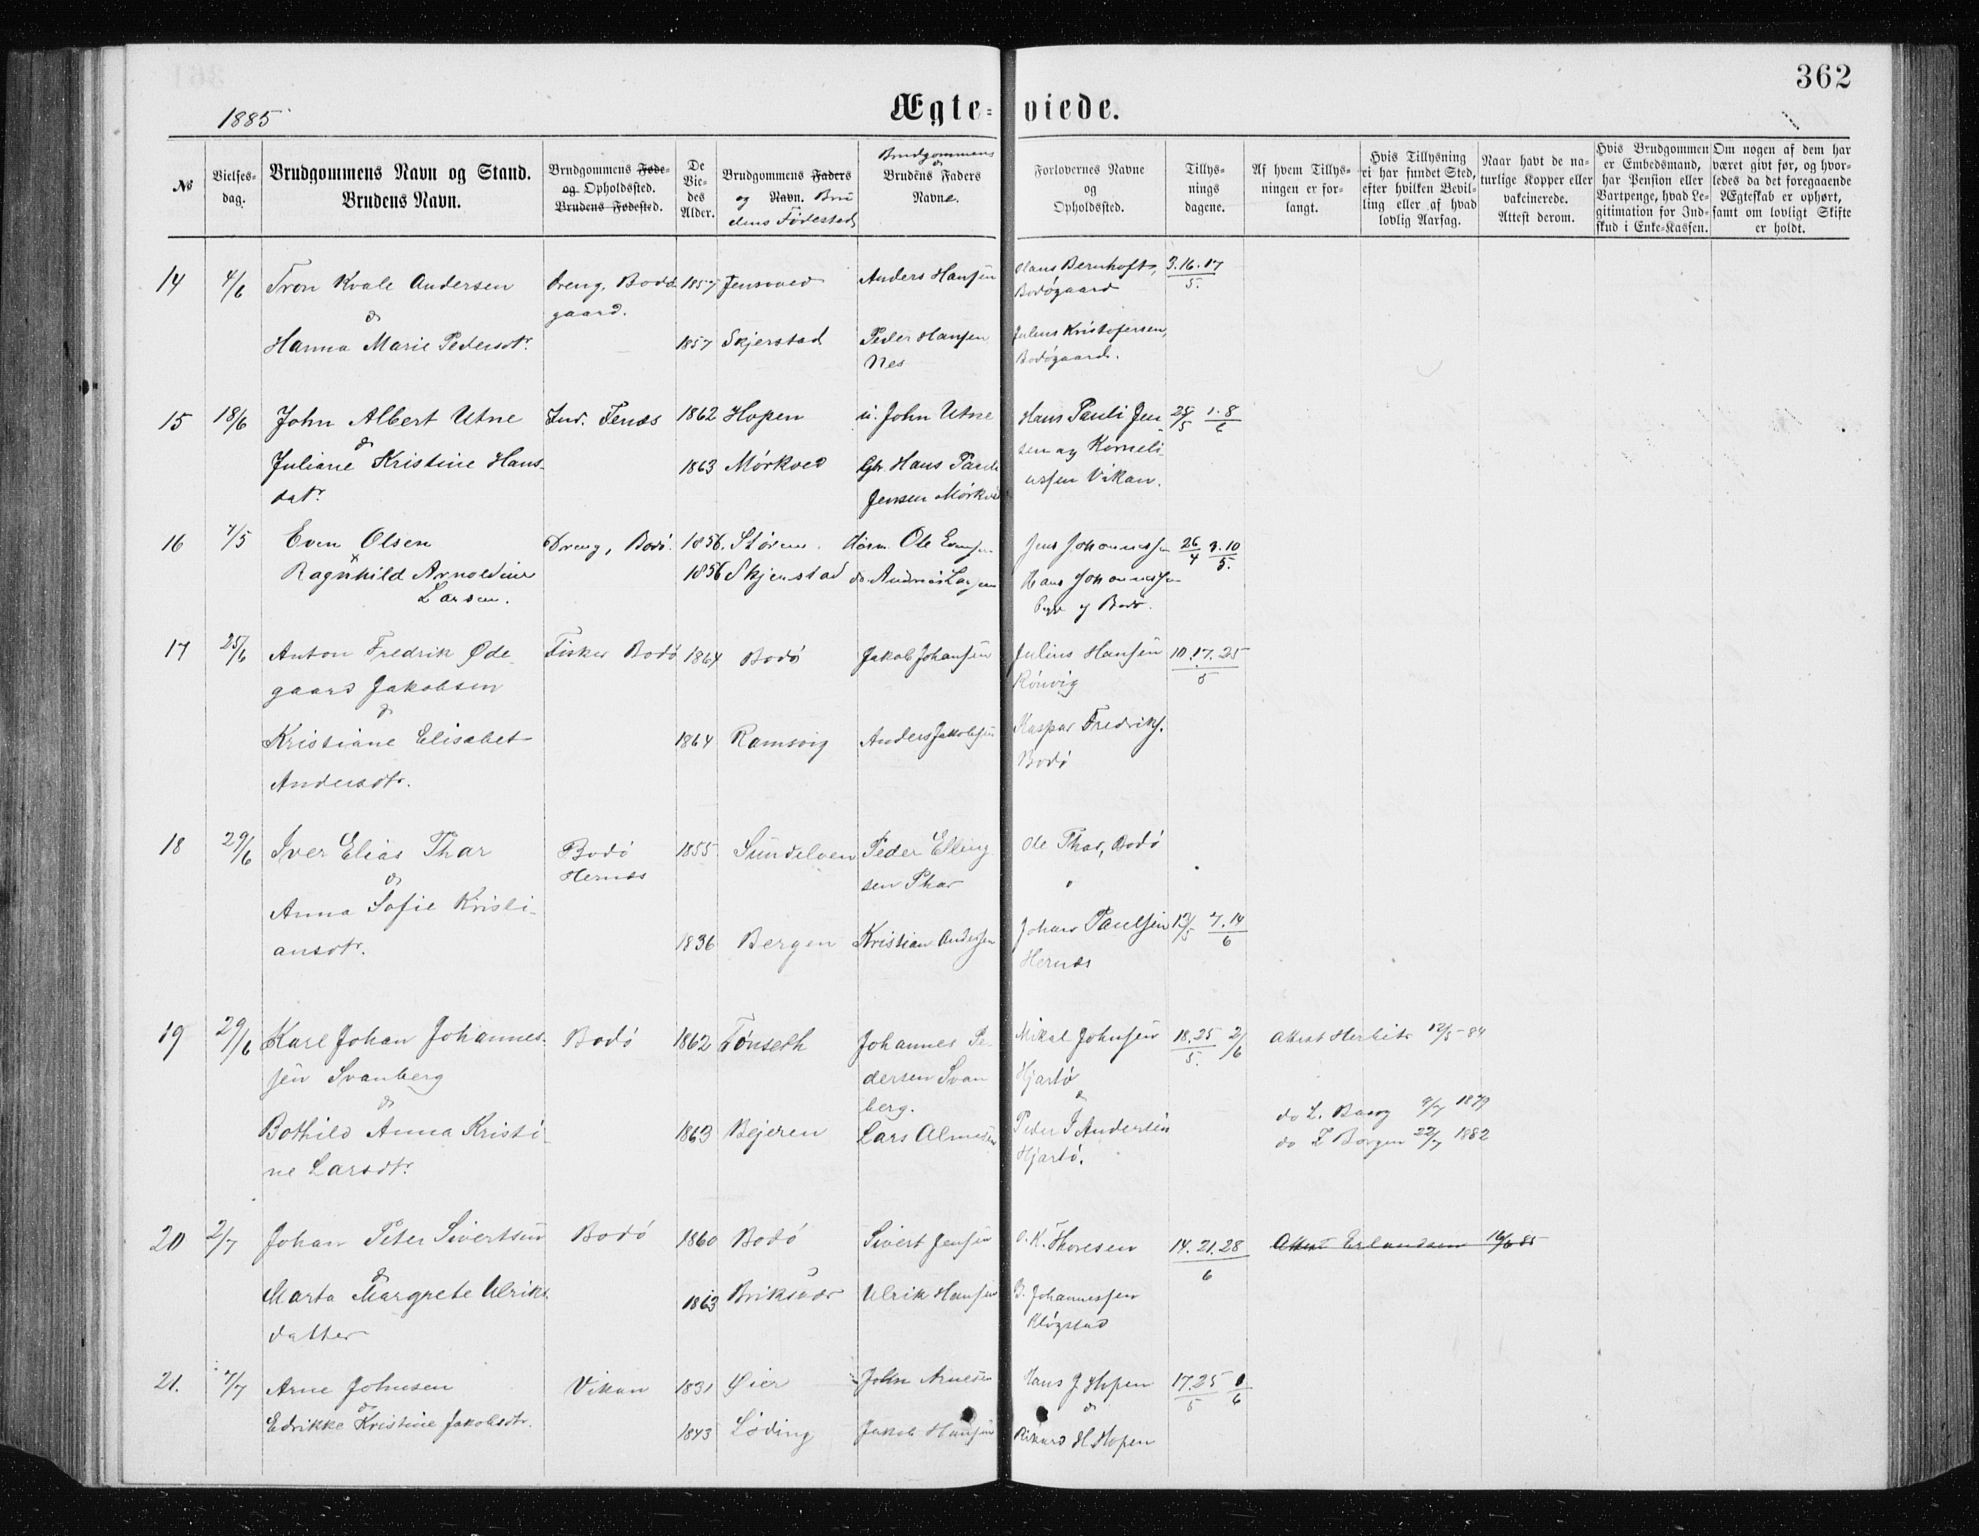 362
1885
Ægte-viede.
No
Vielses-
dag.
Brudgommens Navn og Stand.
Brudens Navn.
Brudgommens Føde-
og Opholdssted.
Brudens Fødested.
De
Vie-
des
Alder.
Brudgommens Faders
og Navn. Bru
dens Fødested
Brudgommens
Brudens Faders
Navne.
Forlovernes Navne
og
Opholdssted.
Tillys-
nings
dagene.
Af hvem Tillys-
ningen er for-
langt.
Hvis Tillysning
ei har fundet Sted,
efter hvilken Bevil-
ling eller af hvad
lovlig Aarsag.
Naar havt de na-
turlige Kopper eller
vakcinerede.
Attest derom.
Hvis Brudgommen
er Embedsmand,
har Pension eller
Vartpenge, hvad Le-
gitimation for Ind-
skud i Enke-Kassen.
Om nogen af dem har
været givt før, og hvor-
ledes da det foregaaende
Ægteskab er ophørt,
samt om lovligt Skifte
er holdt.
14 4/6 Tron Kvale Andersen Dreng, Bodø 1857 Jensvold Anders Hansen Hans Bernhoft, 3.16.17
gaard. Bodøgaard 5.
&
Hanna Marie Pedersdtr. 1857 Skjerstad Peder Hansen Julius Kristofersen,
Nes Bodøgaard.
15 18/6 John Albert Utne Ind. Fenes 1862 Hopen u. John Utne Hans Pauli Jen 25/5 1.8/6
&
Juliane Kristine Hans- 1863 Mørkved Gbr. Hans Pauli sen og Korneli
datr. Jensen Mørkved ussen Vikan.
16 7/5 Even Olsen Dreng, Bodø. 1856. Støren. Husm. Ole Evensen Jens Johannessen 26/4 3.10/5.
Ragnhild Arnoldine 1856 Skjerstad do Andreas Larsen Hans Johannessen
Larsen. og Bodø.
17 25/6 Anton Fredrik Øde- Fisker Bodø 1864 Bodø Jakob Johansen Julius Hansen 10.17.25
gaard Jakobsen Rønvig 5
&
Kristiane Elisabet 1864 Ramsvig Anders Jakobsen Kaspar Fredriks.
Andersdtr. Bodø
18 29/6 Iver Elias Thar Bodø 1855 Sundeloen Peder Elling Ole Thar, Bodø
Hernes sen Thar
&
Anna Sofie Kristi-
ansdtr. 1836 Bergen Kristian Andersen Johan Paulsen 12/5 7.14/6
Hernes
19 29/6 Karl Johan Johannes- Bodø 1862 Tønseth Johannes Pe- Mikal Johnsen 18.25/5. 2/6 Attest Herbits 12/5-84
sen Svanberg dersen Svan Hjartø
& berg. &
Bothild Anna Kristi- 1863 Bejeren Lars Almesen Peder S Andersen do L. Barry 9/7 1879
ne Larsdtr. Hjartø. do L Borgen 22/7 1882
20 2/7 Johan Peter Sivertsen Bodø 1860 Bodø Sivert Jensen O.K. Thoresen 14.21.28 Attest Erlandsen 16/6 85
& 6
Marta Margrete Ulriks 1863 Briksvær Ulrik Hansen B. Johannessen
datter Kløgstad
21. 7/7 Arne Johnsen Vikan 1831 Øier John Arnesen Hans J Hopen 17.25/5 /6
& &
Edrikke Kristine Jakobsdtr. 1843 Løding Jakob Hansen Rikard H. Hopen